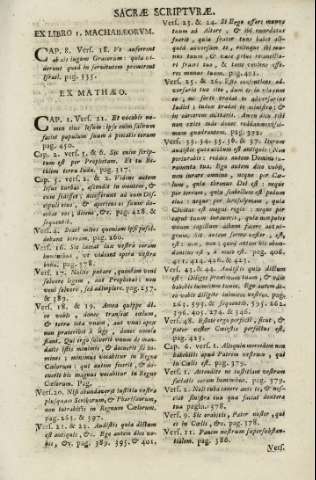 SACRÆ SCRIPTVRÆ.
EX LIBRO 1. MACHABÆORVM.
CAP. 8. Vers. 18. Ut auferrent
ab eis iugum Græcorum: quia
quod in servitutem premerent
Israel. pag. 135.
EX MATHÆO.
CAP. 1. Vers. 21. Et vocabis no-
men eius Iesum: ipse enim salvum
faciet populum suum à peccatis eorum
pag. 450.
Cap. 2. Vers. 5. & 6. Sic enim scrip-
tum est per Prophetam. Et tu Be-
thlem terra Iuda. pag. 317.
Cap. 5. vers. 1. & 2. Videns autem
Iesus turbas, ascendit in montem, &
cum sedisset, accesserunt ad eum Dis-
cipuli eius, & aperiens os suum do-
cebat eos, dicens, &c. pag. 428. &
sequentib.
Vers. 4. Beati mites quoniam ipsi possi-
debunt terram. pag. 260.
Vers. 16. Sic luceat lux vestra coram
hominibus, ut videant opera vestra
bona. pag. 378.
Vers. 17. Nolite putare, quoniam veni
solvere legem, aut Prophetas: non
veni solvere, sed adimplere. pag. 257.
& 387.
Vers. 18. & 19. Amen quippe di-
co vobis, donec transeat cælum,
& terra iota unum, aut unus apex
non præteribit à lege, donec omnia
fiant. Qui ergo solverit unum de man-
datis istis minimis, & docuerit sic ho-
mines: minimus vocabitur in Regno
Cælorum: qui autem fecerit, & do-
cuerit hic magnus vocabitur in Regno
Cælorum. Pag.
Vers. 20. Nisi abundaverit iustitia vestra
plusquam Scribarum, & Pharisæorum,
non intrabitis in Regnum Cælorum.
pag. 263. & 397.
Vers. 21. & 22. Audistis quia dictum
est antiquis, &c. Ego autem dico vo-
bis, &c. pag. 389. 395. & 401.
Vers. 23. & 24. Si Ergo offers munus
tuum ad Altare, & ibi recordatus
fueris, quia frater tuus habet ali-
quid adversum te, relinque ibi mu-
nus tuum, & vade prius reconciliari
fratri tuo, & tunc veniens offe-
res munus tuum. pag. 402.
Vers. 25. & 26. Esto consentiens ad-
versario tuo cito, dum es in via cum
eo, ne forte tradat te adversarius
Iudici: & Iudex tradat te ministro,
& in carcerem mittaris. Amen dico tibi
non exies inde donec reddas novissi-
mum quadrantem. pag. 372.
Vers. 33. 34. 35. 36. & 37. Iterum
audistis quia dictum est antiquis: Non
periurabis: reddes autem Domino iu-
ramenta tua. Ego autem dico vobis,
non iurare omnino, neque per Cæ-
lum, quia thronus Dei est: neque
per terram, quia scabellum est pedum
eius: neque per Ierosolymam, quia
Civitas est magni regis: neque per
caput tuum iuraveris, quia non potes
unum capillum album facere aut ni-
grum. Sit autem sermo vester, est,
est: non, non: quod autem his abun-
dantius est, à malo est. pag. 406.
421. 424. 426. & 425.
Vers. 43. & 44. Audistis quia dictum
est: Diliges proximum tuum, & odio
habebis inimicum tuum. Ego autem di-
co vobis diligite inimicos vestros. pag.
263. 395. & sequentib. 395. 262.
396. 405. 274. & 346.
Vers. 48. Estote ergo perfecti, sicut, &
pater vester Cælestis perfectus est,
pag. 425.
Cap. 6. vers. 1. Alioquin mercedem non
habebitis apud Patrem vestrum, qui
in Cælis est. pag. 379.
Vers. 1. Attendite ne iustitiam vestram
faciatis coram hominibus. pag. 379.
Vers. 3. Nesciat sinistra tua quid faciat dextera
tua pagin. 378.
Vers. 9. Sic orabitis, Pater noster, qui
es in Cælis, &c. pag. 178.
Vers. 11. Panem nostrum supersubstan-
tialem. pag. 386.
Vers.